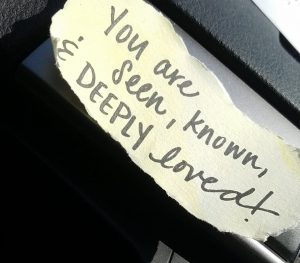 You are
Seen, known,
& DEEPLY loved!